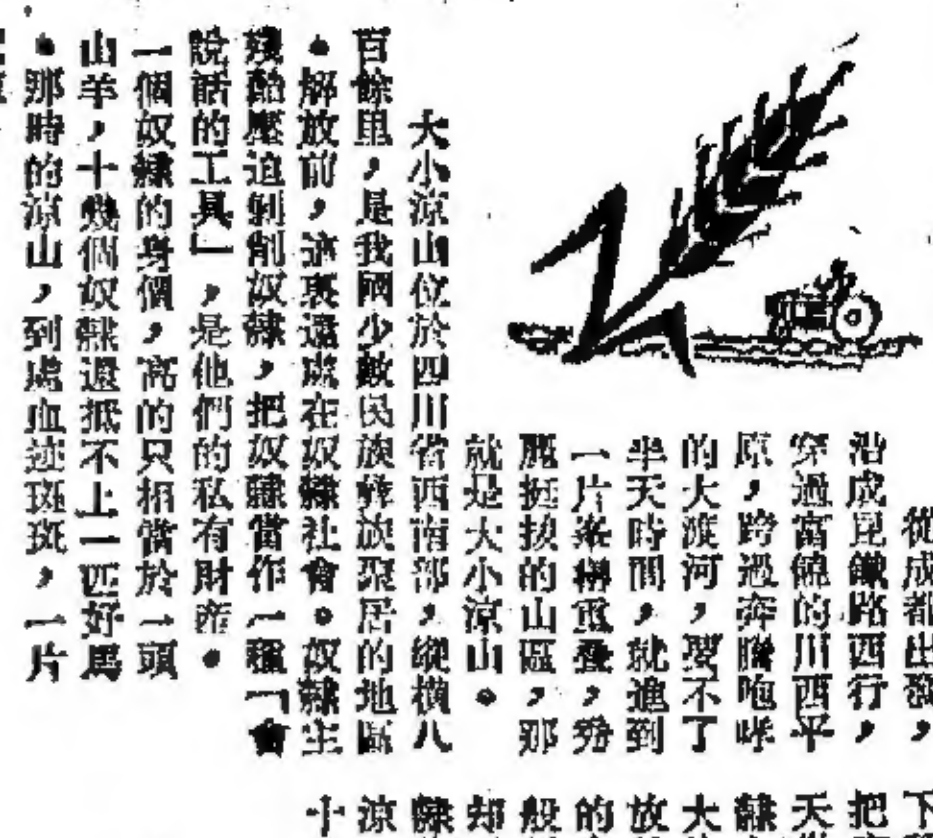 從成都出發，
沿成昆鐵路西行，
穿過富饒的川西平
原，跨過奔騰咆哮
的大渡河，要不了
半天時間，就進到
一片層巒重疊，秀
麗挺拔的山區，那
就是大小涼山。
大小涼山位於四川省西南部，縱橫八
百餘里，是我國少數民族彝族聚居的地區
。解放前，這裏還處在奴隸社會。奴隸主
殘酷壓迫剝削奴隸，把奴隸當作一種「會
說話的工具」，是他們的私有財產。
一個奴隸的身價，高的只相當於一頭
山羊，十幾個奴隸還抵不上一匹好馬
。那時的涼山，到處血迹斑斑，一片
下
把
天
隸
大
放
的
般
却
隸
涼
十